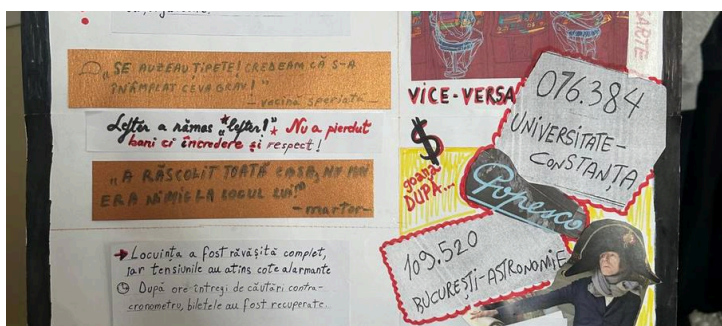 „SE AUZEAU ȚIPETE! CREDEAM CĂ S-A
ÎNÂMPLAT CEVA GRAV!"
- vecină speriată -
Lefter a rămas „lefter!" Nu a pierdut
bani ci încredere și respect!
„A RĂSCOLIT TOATĂ CASA, NU MAI
ERA NIMIC LA LOCUL LUI!"
- martor -
→ Locuința a fost răvășită complet,
iar tensiunile au atins cote alarmante
După ore întregi de căutări contra-
cronometro, biletele au fost recuperate.
VICE-VERSA
$
goana
DUPĂ...
Popesco
076.384
UNIVERSITATE-
CONSTANȚA
109.520
BUCUREȘTI-ASTRONOMIE